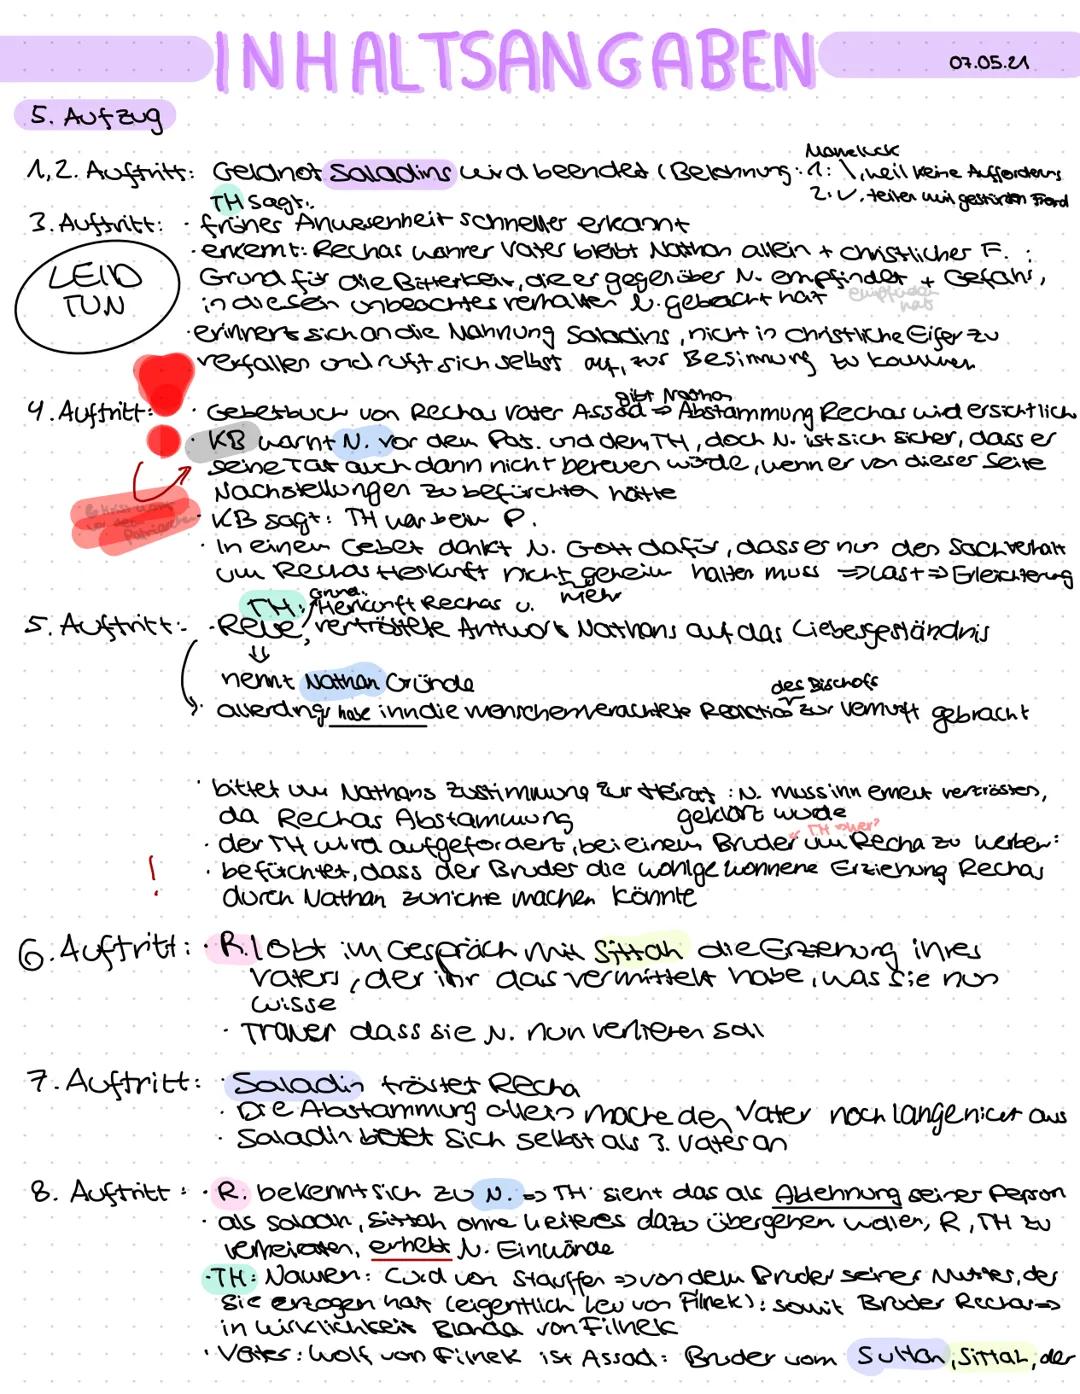 INHALTSANGABEN
07.05.21
5. Aufzug
Mameluck
1,2. Auftritt: Geldnot Saladins wird beendet (Belohnung: 1: \, weil keine Aufforderung
2: ✓, teilen mit gestürzten Freund
TH sagt:
3. Auftritt: · frühes Anwesenheit schneller erkannt
LEID TUN
· erkennt: Rechas wahrer Vater bleibt Nathan allein + christlicher F. :
Grund für die Bitterkeit, die er gegenüber N. empfindet + Gefahr,
in die sein unbeachtes verhalten N. gebracht hat empfunden hats
· erinnert sich an die Mahnung Saladins, nicht in christliche Eifer zu
verfallen und ruft sich selbst auf, zur Besinnung zu kommen
gibt Nathan
4. Auftritt: · Gebetbuch von Rechas Vater Assad => Abstammung Rechas wird ersichtlich
· KB warnt N. vor dem Pats. und dem TH, doch N. ist sich sicher, dass er
seine Tat auch dann nicht bereuen würde, wenn er von dieser Seite
Nachstellungen zu befürchten hätte
Patriarchen
· KB sagt: TH war beim P.
· In einem Gebet dankt N. Gott dafür, dass er nun den Sachverhalt
um Rechas Herkunft nicht geheim halten muss => Last => Erleichterung
mehr
TH: Grund: Herkunft Rechas u.
5. Auftritt: · Reue, vertröstete Antwort Nathans auf das Liebesgeständnis
nennt Nathan Gründe
des Bischofs
· allerdings habe inn die menschenverachtete Reaktion zur Vernunft gebracht
· bittet um Nathans Zustimmung zur Heirat : N. muss inn erneut vertrösten,
da Rechas Abstammung geklärt wurde
" TH
· der TH wird aufgefordert, bei einem Bruder um Recha zu werben:
! · befürchtet, dass der Bruder die wohlgewonnene Erziehung Rechas
durch Nathan zunichte machen könnte
6. Auftritt: · R. lobt im Gespräch mit Sittah die Erziehung ihres
Vaters, der ihr das vermittelt habe, was sie nun
wisse
· Trauer dass sie N. nun verlieren soll
7. Auftritt: · Saladin tröstet Recha
· Die Abstammung allein mache den Vater noch lange nicht aus
· Saladin bietet sich selbst als 3. Vater an
8. Auftritt: · R. bekennt sich zu N. => TH sieht das als Ablehnung seiner Person
· als Saladin, Sittah ohne weiteres dazu übergehen wollen, R, TH zu
verheiraten, erhebt N. Einwände
· TH: Namen: Curd von Stauffen => von dem Bruder seiner Mutter, der
sie erzogen hat (eigentlich Leu von Filnek): somit Bruder Rechas =>
in wirklichkeit Blanda von Filnek
· Vater: Wolf von Filnek ist Assad: Bruder vom Sultan, Sittah, der